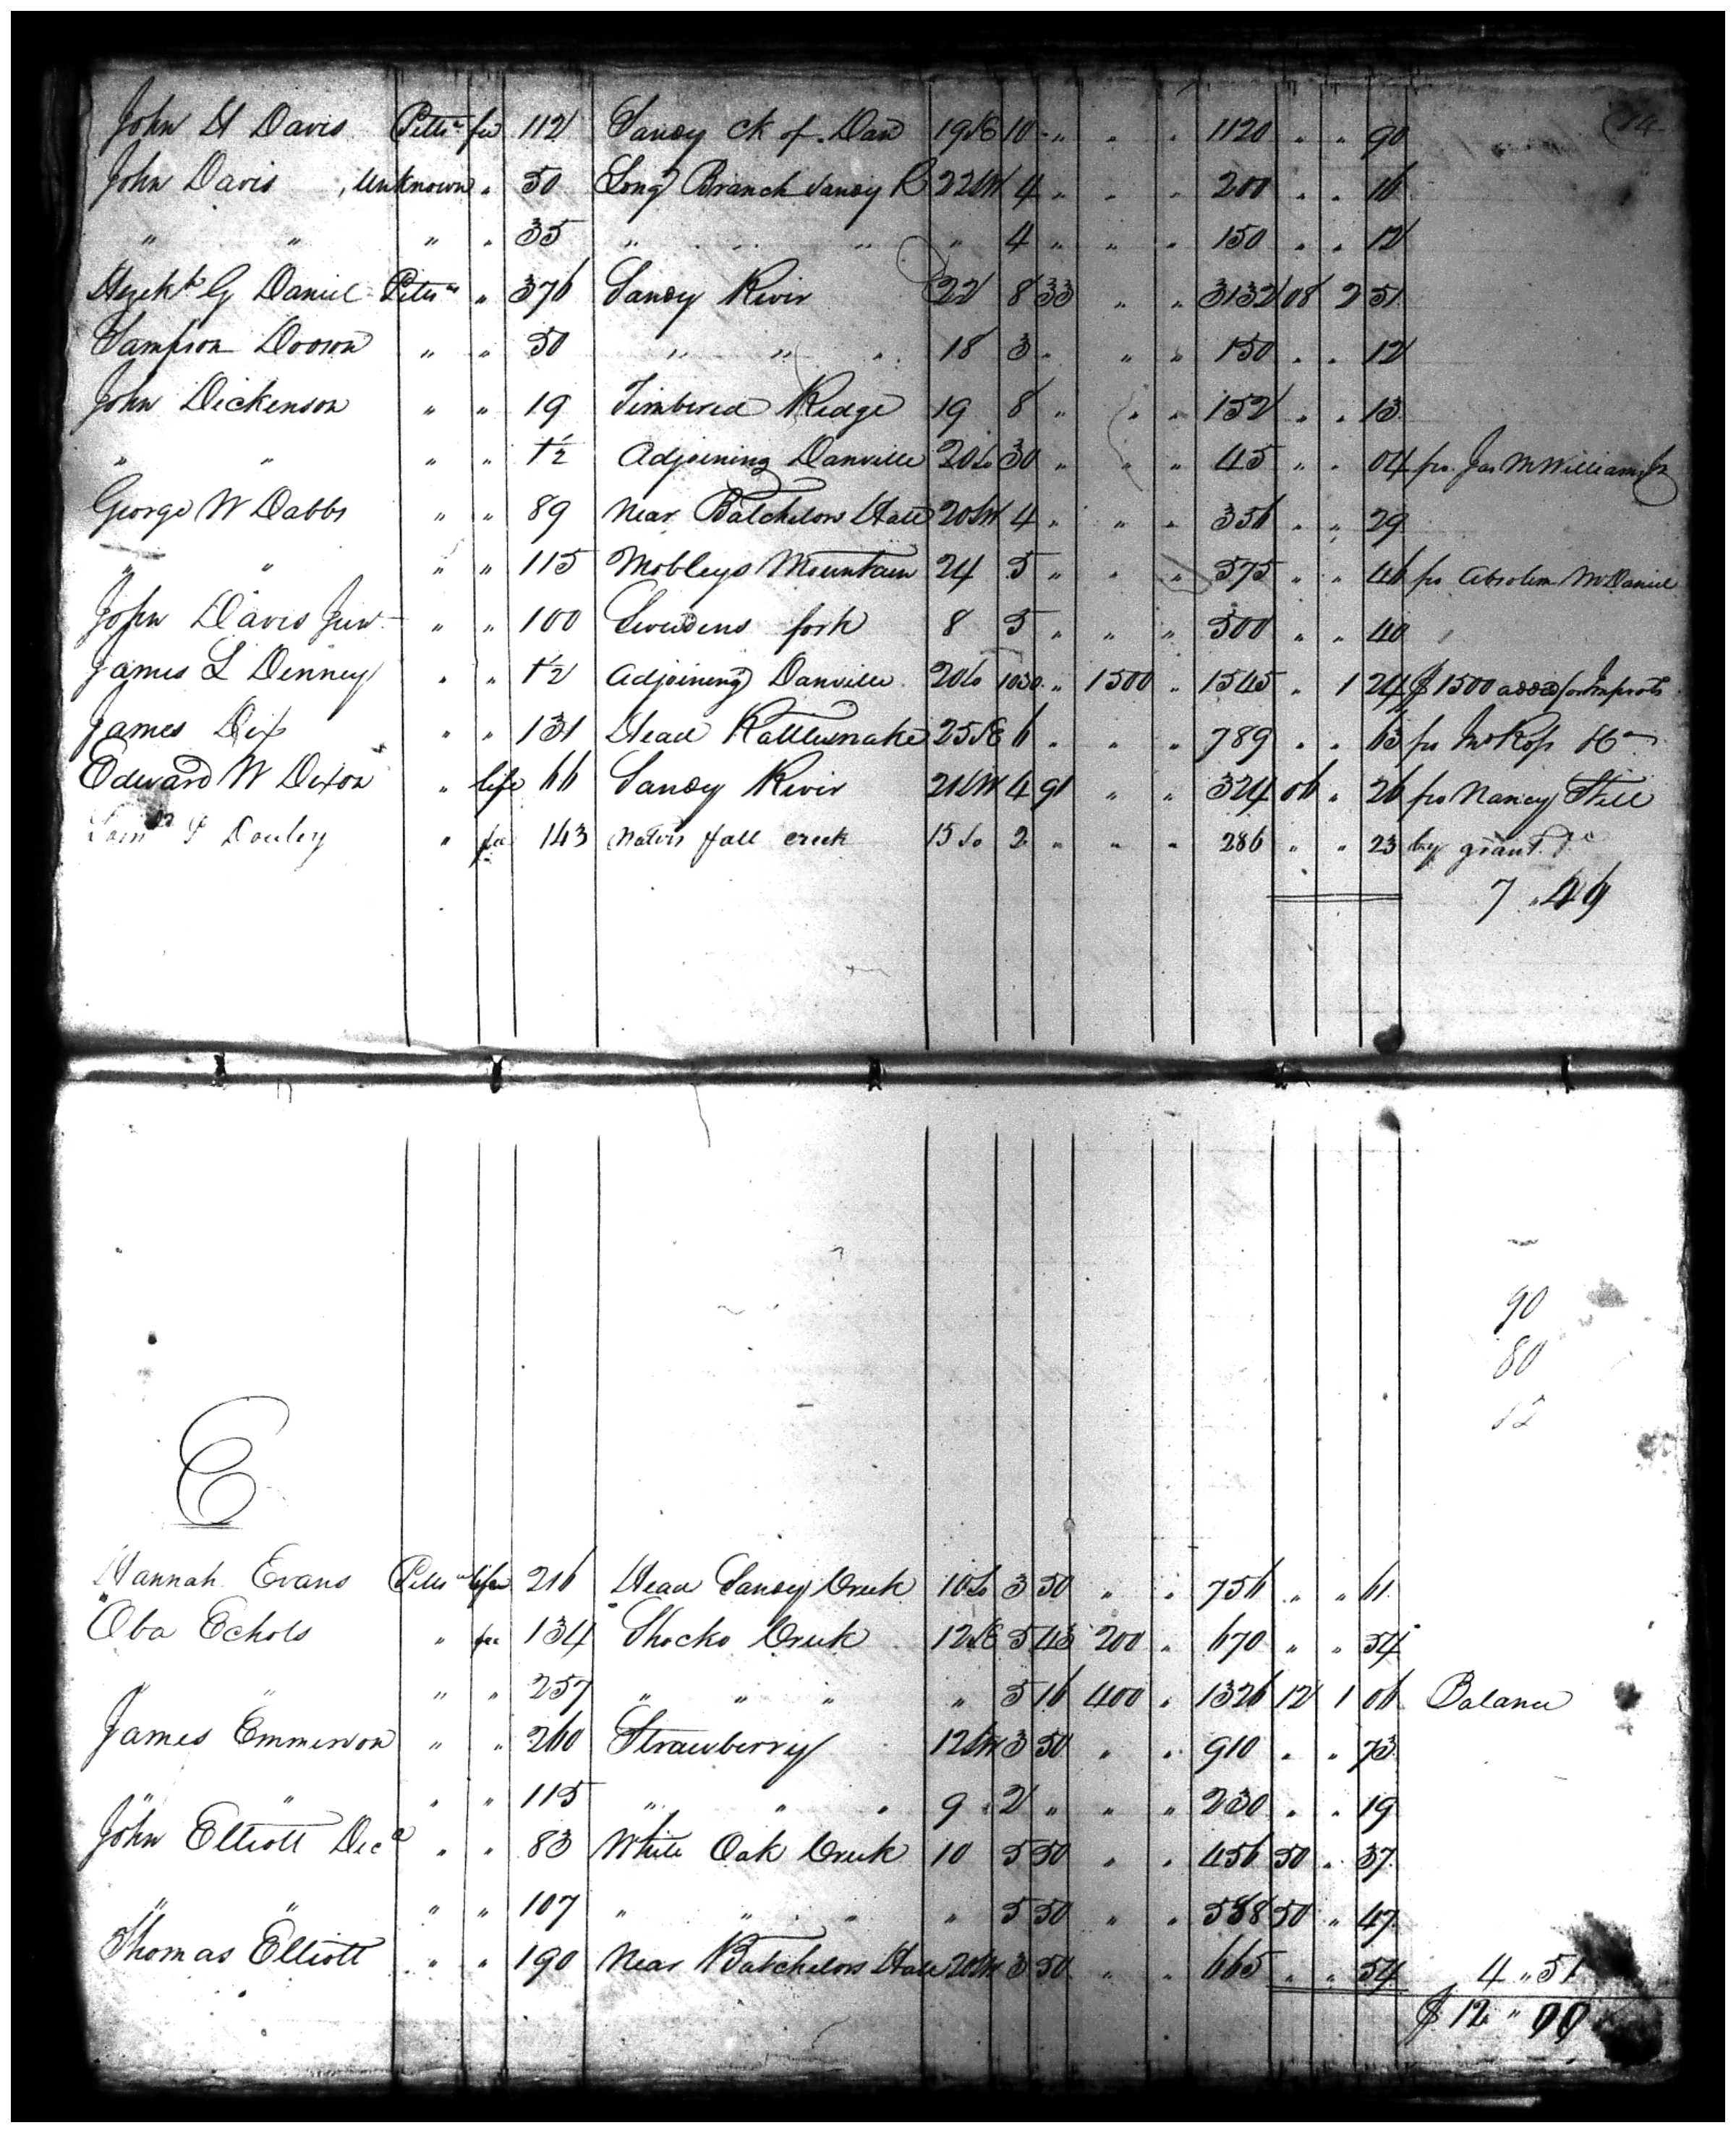 14
John H Davis Pitts a fee 112 Sandy Ck of Dan 19 NE 10 " " " 1120 " " 90
John Davis Unknown " 50 Long Branch Sandy R 22 SW 4 " " " 200 " " 16
" " " " 35 " " " " 4 " " " 150 " " 12
Hezekh G Daniel Pitts a " 376 Sandy River 22 8 33 " " 3132 08 2 51
Sampson Dodson " " 50 " " " 18 3 " " " 150 " " 12
John Dickenson " " 19 Timbered Ridge 19 8 " " " 152 " " 13
" " " " 1 1/2 Adjoining Danville 20 So 30 " " " 45 " " 04 fro Jas M Williams Jr
George W Dabbs " " 89 Near Batchelors Hall 20 SW 4 " " " 356 " " 29
" " " " 115 Mobleys Mountain 24 5 " " " 575 " " 46 fro Absolem McDaniel
John Davis Junr " " 100 fork 8 5 " " " 500 " " 40
James L Denney " " 1 1/2 Adjoining Danville 20 So 1030 " 1500 " 1545 " 1 24 $1500 added for Improts
James Dix " " 131 Head Rattlesnake 25 NE 6 " " " 789 " " 63 fro
Edward W Dixon " life 66 Sandy River 21 SW 4 91 " " 324 06 " 26 fro Nancy Still
Saml " fee 143 Waters fall creek 15 So 2 " " " 286 " " 23 by grant
7 " 49
90
80
12
E
Hannah Evans Pitts a life 216 Head Sandy Creek 10 So 3 50 " " 756 " " 61
Oba Echols " fee 134 Shocko Creek 12 NE 5 43 200 " 670 " " 54
" " " " 257 " " " " 5 16 400 " 1326 12 1 06 Balance
James Emmerson " " 260 Strawberry 12 SW 3 50 " " 910 " " 73
" " " " 115 " " " 9 2 " " " 230 " " 19
John Elliott Decd " " 83 White Oak Creek 10 5 50 " " 456 50 " 37
" " " " 107 " " " " 5 50 " " 588 50 " 47
Thomas Elliott " " 190 Near Batchelors Hall 20 SW 3 50 " " 665 " " 54
4 " 51
$12 " 00